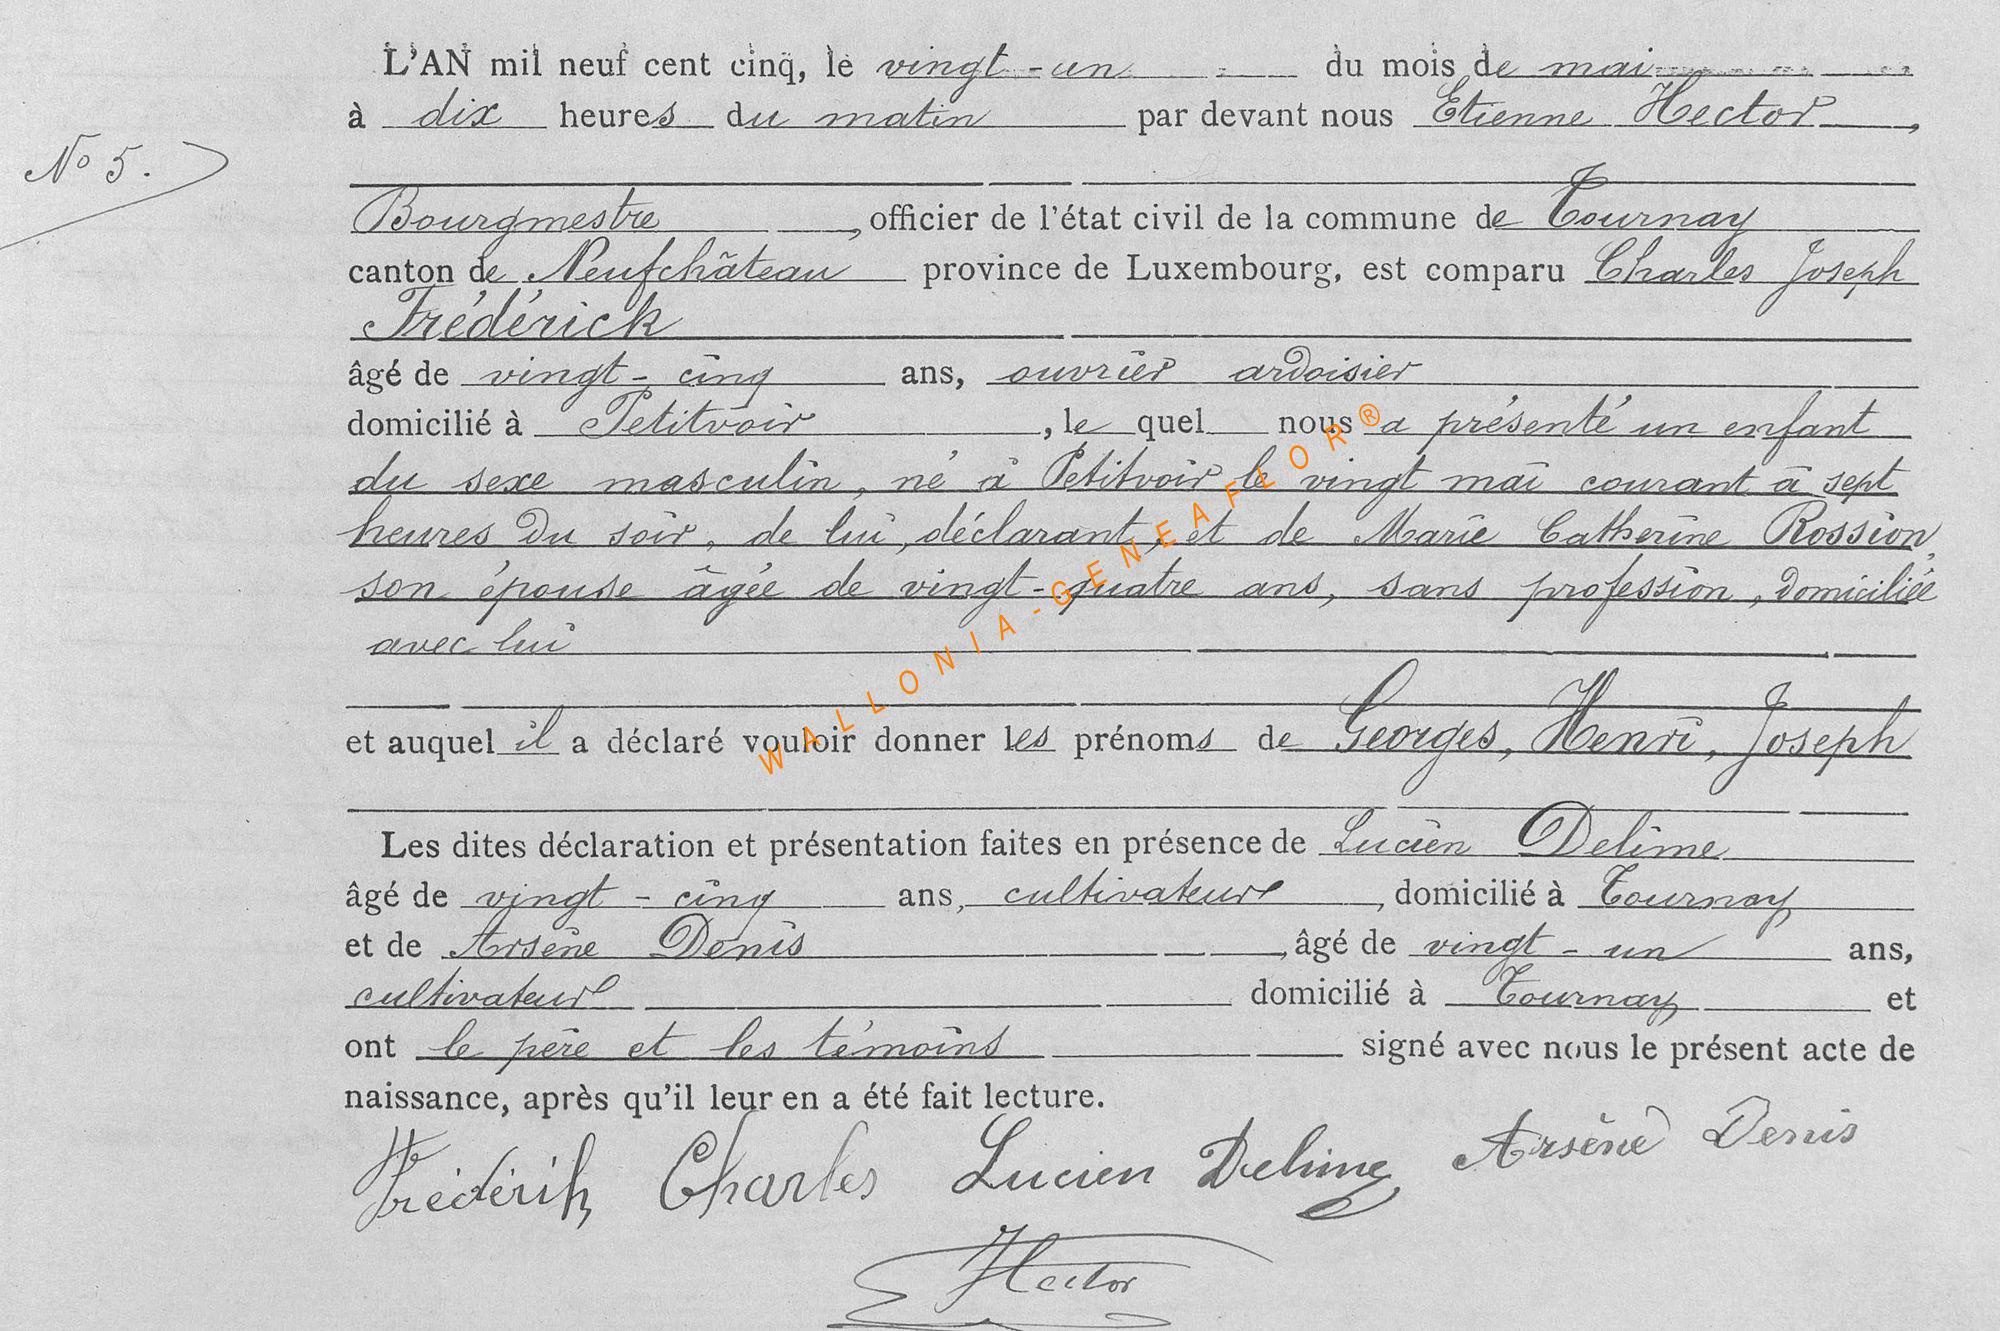 L'AN mil neuf cent cinq, le vingt-un du mois de mai
à dix heures du matin par devant nous Etienne Hector,
N° 5.
Bourgmestre, officier de l'état civil de la commune de Tournay
canton de Neufchâteau province de Luxembourg, est comparu Charles Joseph
Frédérick
âgé de vingt-cinq ans, ouvrier ardoisier
domicilié à Petitvoir, le quel nous a présenté un enfant
du sexe masculin, né à Petitvoir le vingt mai courant à sept
heures du soir, de lui, déclarant, et de Marie Catherine Rossion,
son épouse âgée de vingt-quatre ans, sans profession, domiciliée
avec lui
et auquel il a déclaré vouloir donner les prénoms de Georges, Henri, Joseph
Les dites déclaration et présentation faites en présence de Lucien Delime
âgé de vingt-cinq ans, cultivateur, domicilié à Tournay
et de Arsène Denis, âgé de vingt-un ans,
cultivateur domicilié à Tournay et
ont le père et les témoins signé avec nous le présent acte de
naissance, après qu'il leur en a été fait lecture.
Frédérik Charles Lucien Delime Arsène Denis
Hector
WALLONIA-GENEAFLOR®